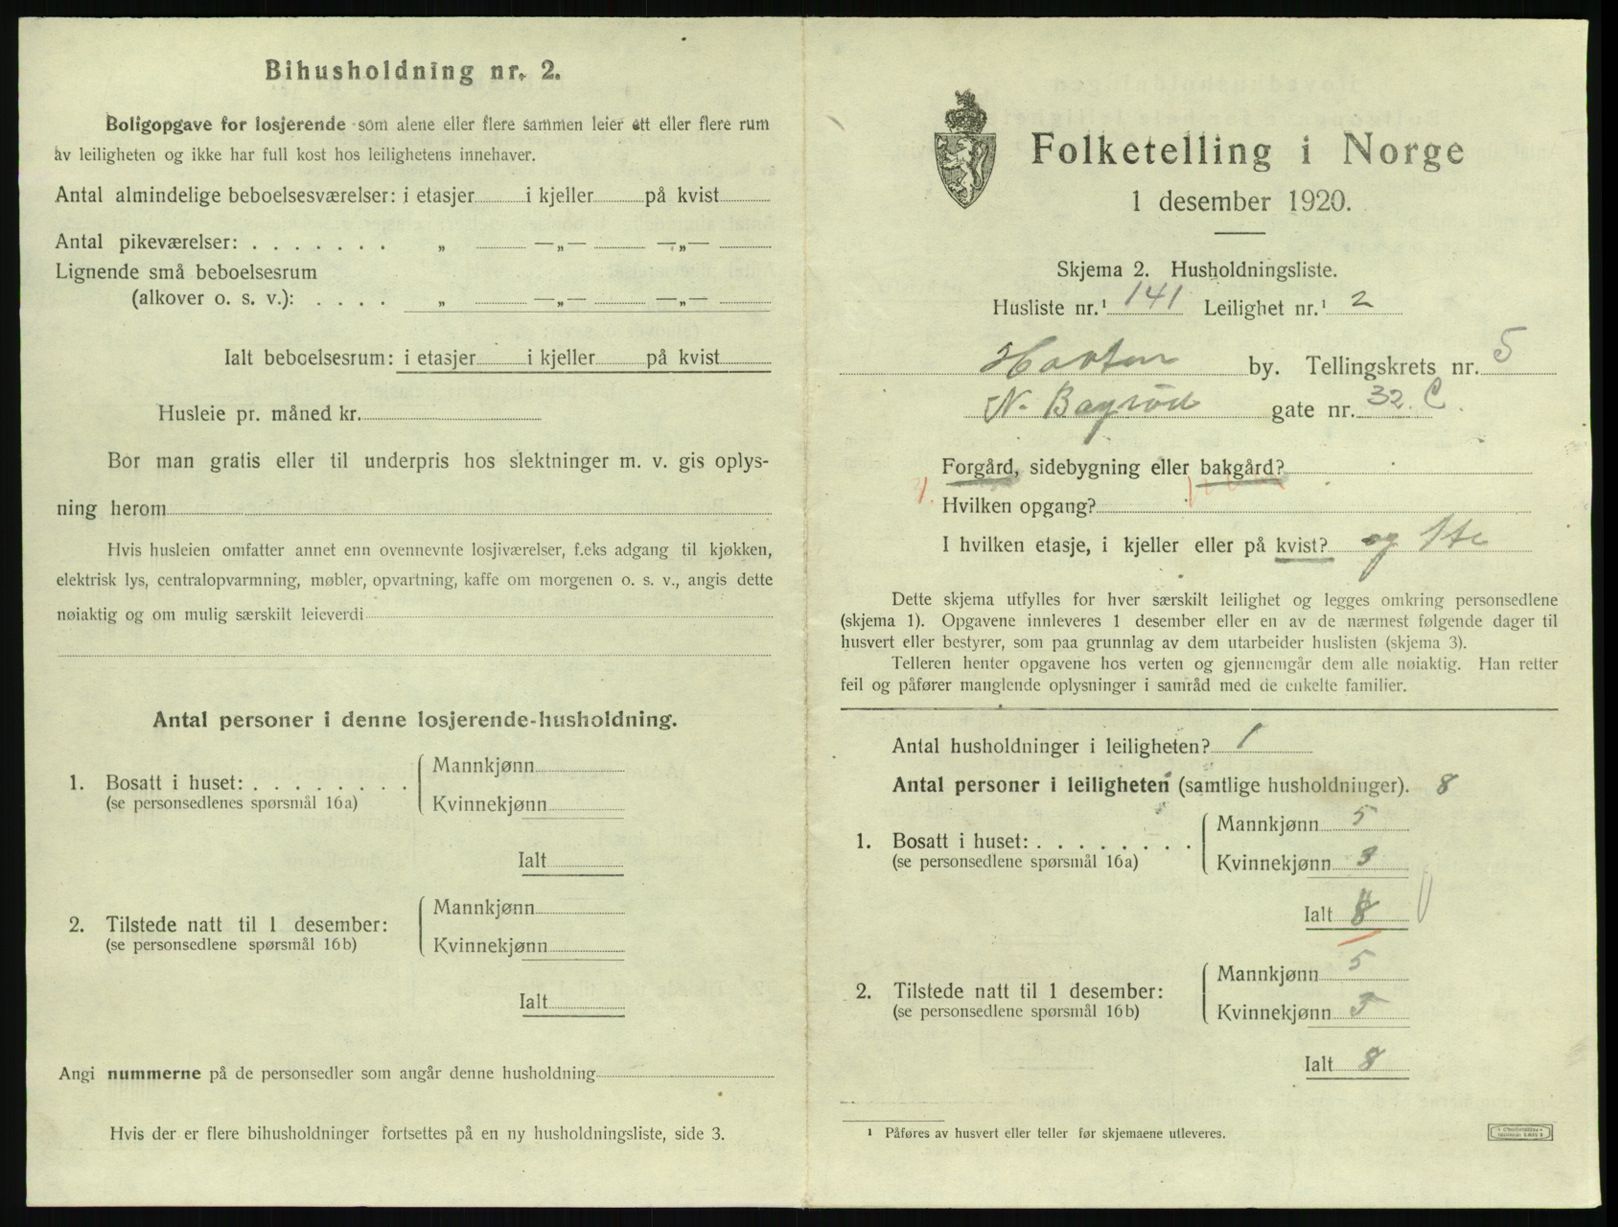 Bihusholdning nr. 2.
Boligopgave for losjerende som alene eller flere sammen leier ett eller flere rum
av leiligheten og ikke har full kost hos leilighetens innehaver.
Antal almindelige beboelsesværelser: i etasjer i kjeller på kvist
Antal pikeværelser: . . . . . . . „ —„— —„—
Lignende små beboelsesrum
(alkover o. s. v.): . . . . „ —„— —„—
Ialt beboelsesrum: i etasjer i kjeller på kvist
Husleie pr. måned kr.
Bor man gratis eller til underpris hos slektninger m. v. gis oplys-
ning herom
Hvis husleien omfatter annet enn ovennevnte losjiværelser, f.eks adgang til kjøkken,
elektrisk lys, centralopvarmning, møbler, opvartning, kaffe om morgenen o. s. v., angis dette
nøiaktig og om mulig særskilt leieverdi
Antal personer i denne losjerende-husholdning.
1. Bosatt i huset: . . . . . . . . Mannkjønn
(se personsedlenes spørsmål 16a) Kvinnekjønn
Ialt
2. Tilstede natt til 1 desember: Mannkjønn
(se personsedlene spørsmål 16b) Kvinnekjønn
Ialt
Angi nummerne på de personsedler som angår denne husholdning
Hvis der er flere bihusholdninger fortsettes på en ny husholdningsliste, side 3.
Folketelling i Norge
1 desember 1920.
Skjema 2. Husholdningsliste.
Husliste nr.¹ 141 Leilighet nr.¹ 2
Horten by. Tellingskrets nr. 5
N. Bagrød gate nr. 32. C.
Forgård, sidebygning eller bakgård?
Hvilken opgang?
I hvilken etasje, i kjeller eller på kvist? og 1ste
Dette skjema utfylles for hver særskilt leilighet og legges omkring personsedlene
(skjema 1). Opgavene innleveres 1 desember eller en av de nærmest følgende dager til
husvert eller bestyrer, som paa grunnlag av dem utarbeider huslisten (skjema 3).
Telleren henter opgavene hos verten og gjennemgår dem alle nøiaktig. Han retter
feil og påfører manglende oplysninger i samråd med de enkelte familier.
Antal husholdninger i leiligheten? 1
Antal personer i leiligheten (samtlige husholdninger). 8
1. Bosatt i huset: . . . . . . . . Mannkjønn 5
(se personsedlene spørsmål 16a) Kvinnekjønn 3
Ialt 8
2. Tilstede natt til 1 desember: Mannkjønn 5
(se personsedlene spørsmål 16b) Kvinnekjønn 3
Ialt 8
¹ Påføres av husvert eller teller før skjemaene utleveres.